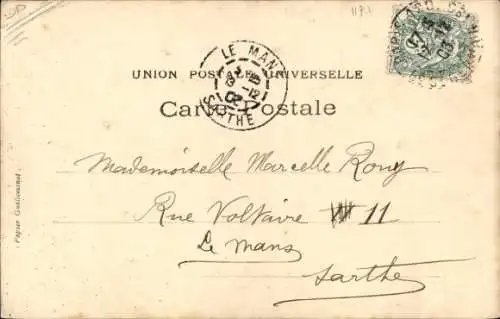 1172
LE MANS
UNION POSTALE UNIVERSELLE
Carte Postale
SARTHE
Mademoiselle Marcelle Rony
Rue Voltaire 11
Le Mans
Sarthe